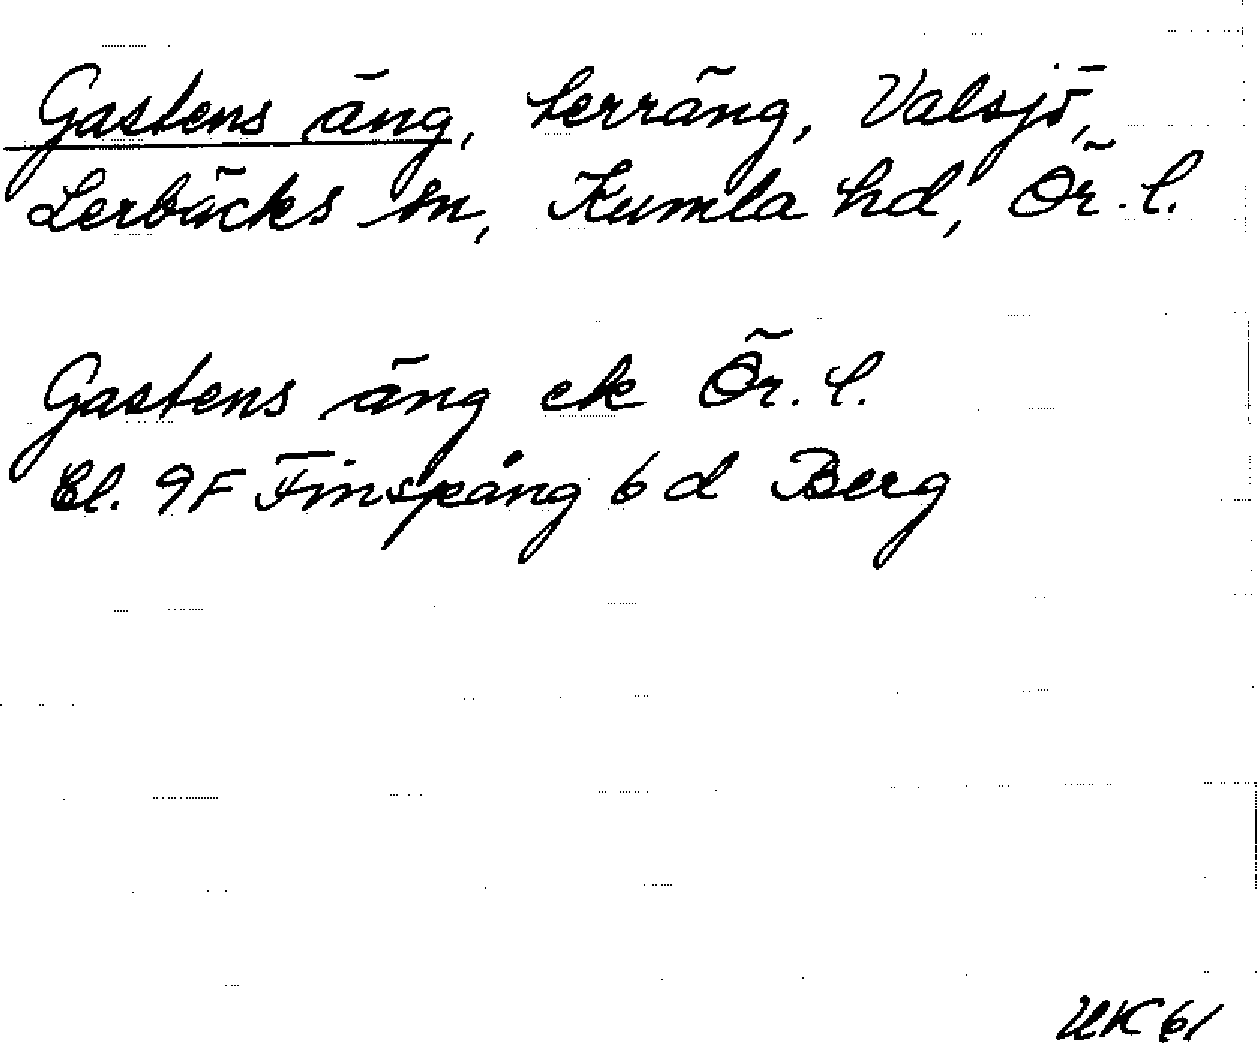 Gastens äng, terräng, Valsjö,
Lerbäcks sn, Kumla hd, Ör. l.
Gastens äng ek Ör. l.
Bl. 9F Finspång 6 d Berg
UK 61